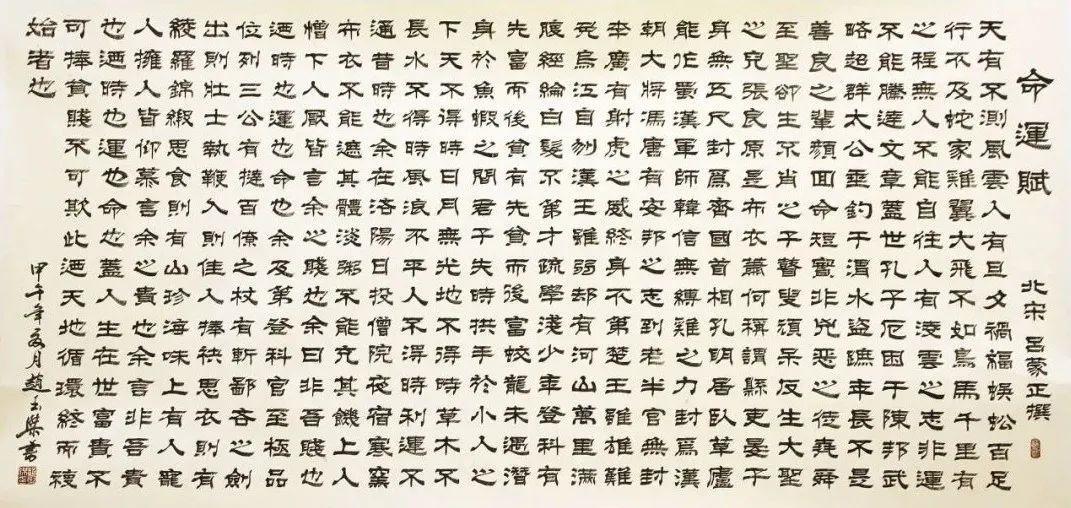 命運賦
北宋 呂蒙正撰
天有不測風雲人有旦夕禍福蜈蚣百足
行不及蛇家雞翼大飛不如鳥馬千里有
之程無人不能自往人有凌雲之志非運
不能騰達文章蓋世孔子厄困于陳邦武
略超群太公垂釣于渭水盜蹠年長不是
善良之輩顏回命短實非兇惡之徒堯舜
至聖卻生不肖之子瞽叟頑呆反生大聖
之兒張良原是布衣蕭何稱謂縣吏晏子
身無五尺封為齊國首相孔明居臥草廬
能作蜀漢軍師韓信無縛雞之力封為漢
朝大將馮唐有安邦之志到老半官無封
李廣有射虎之威終身不第楚王雖雄難
免烏江自刎漢王雖弱却有河山萬里滿
腹經綸白髮不第才疏學淺少年登科有
先富而後貧有先貧而後富蛟龍未遇潛
身於魚蝦之間君子失時拱手於小人之
下天不得時日月無光地不得時草木不
長水不得時風浪不平人不得時利運不
通昔時也余在洛陽日投僧院夜宿寒窯
布衣不能遮其體淡粥不能充其饑上人
憎下人厭皆言余之賤也余曰非吾賤也
迺時也運也命也余及第登科官至極品
位列三公有撻百僚之杖有斬鄙吝之劍
出則壯士執鞭入則佳人捧袂思衣則有
綾羅錦緞思食則有山珍海味上有人寵
人擁人皆仰慕言余之貴也余言非吾貴
也迺時也運也命也蓋人生在世富貴不
可捧貧賤不可欺此迺天地循環終而復
始者也
甲午年夏月趙玉書